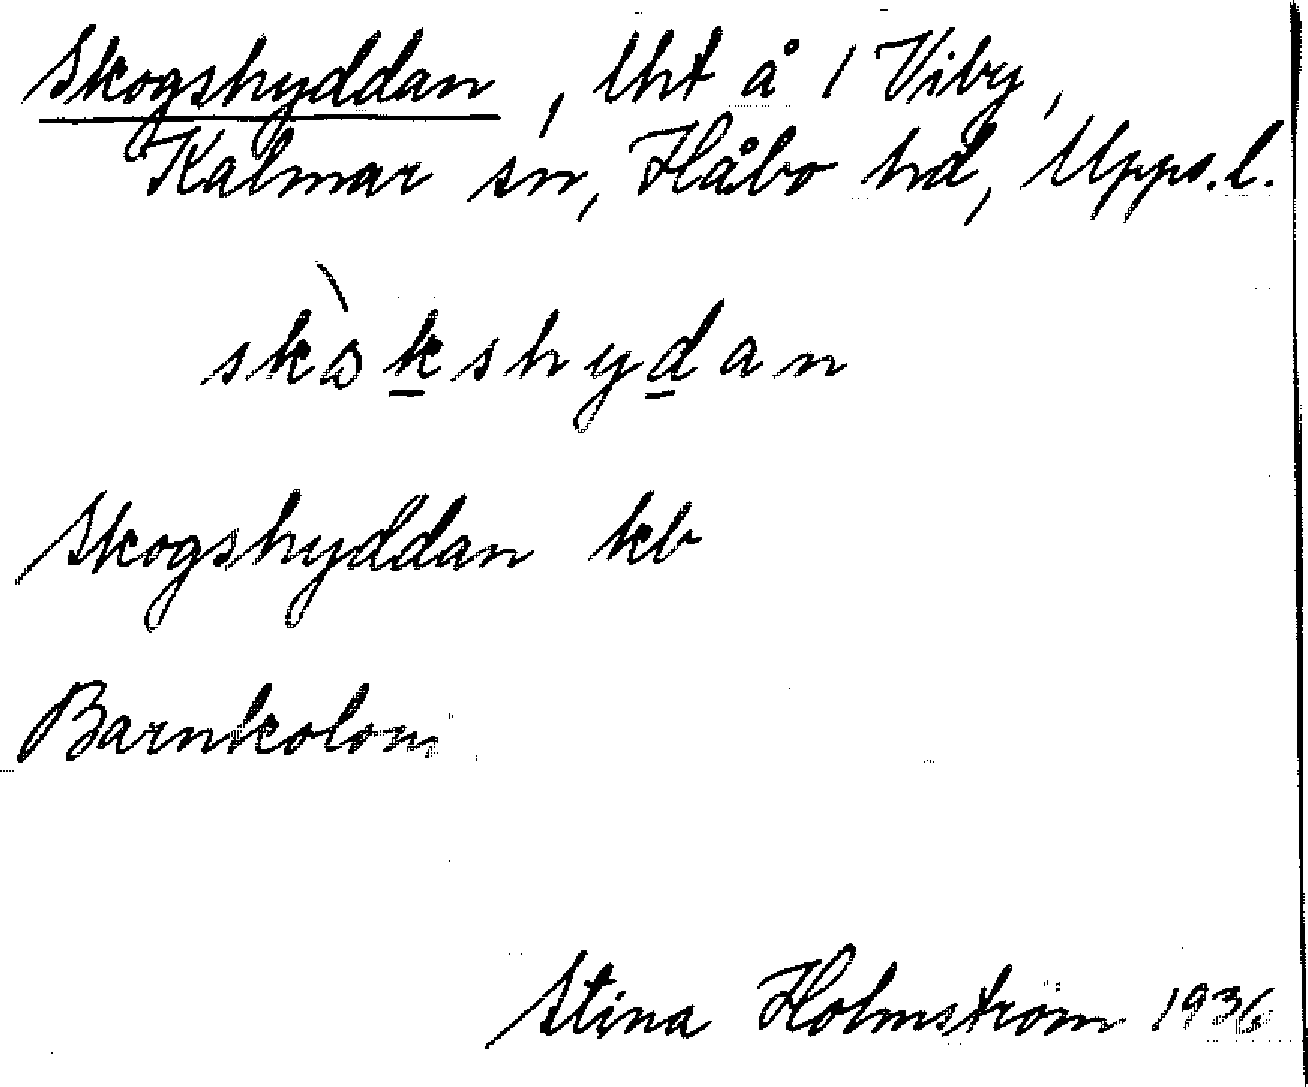 Skogshyddan, lht å 1 Viby,
Kalmar sn, Håbo hd, Upps.l.
skòkshydan
Skogshyddan kb
Barnkoloni
Stina Holmström 1936